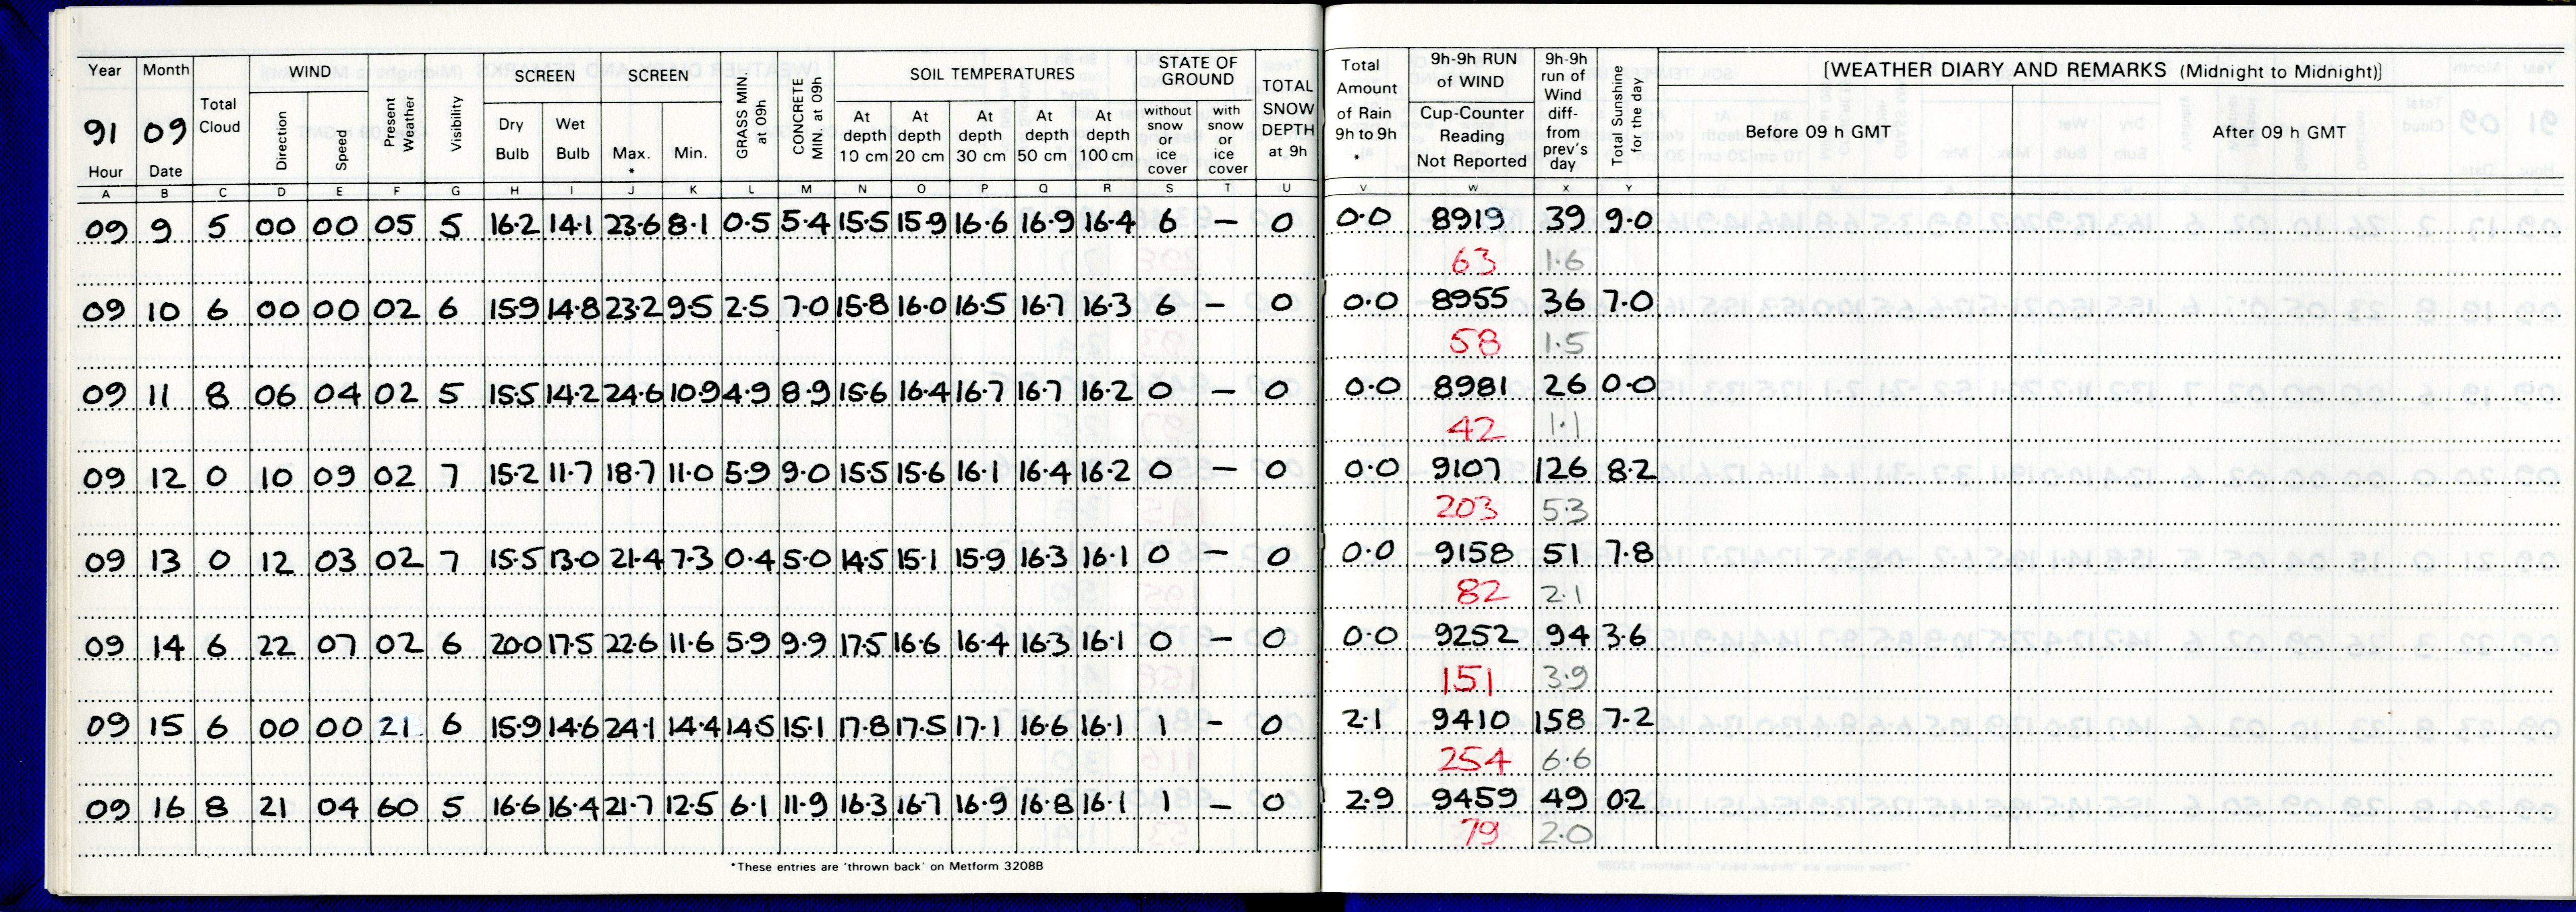 Year Month WIND SCREEN SCREEN SOIL TEMPERATURES STATE OF GROUND
91 09 Total Cloud Direction Speed Present Weather Visibility Dry Bulb Wet Bulb Max. * Min. GRASS MIN at 09h CONCRETE MIN. at 09h At depth 10 cm At depth 20 cm At depth 30 cm At depth 50 cm At depth 100 cm without snow or ice cover with snow or ice cover TOTAL SNOW DEPTH at 9h
Hour Date
Total Amount of Rain 9h to 9h * 9h-9h RUN of WIND Cup-Counter Reading Not Reported 9h-9h run of Wind diff- from prev's day Total Sunshine for the day [WEATHER DIARY AND REMARKS (Midnight to Midnight)]
Before 09 h GMT After 09 h GMT
A B C D E F G H I J K L M N O P Q R S T U V W X Y
09 9 5 00 00 05 5 16.2 14.1 23.6 8.1 0.5 5.4 15.5 15.9 16.6 16.9 16.4 6 — 0 0.0 8919 39 9.0
63 1.6
09 10 6 00 00 02 6 15.9 14.8 23.2 9.5 2.5 7.0 15.8 16.0 16.5 16.7 16.3 6 — 0 0.0 8955 36 7.0
58 1.5
09 11 8 06 04 02 5 15.5 14.2 24.6 10.9 4.9 8.9 15.6 16.4 16.7 16.7 16.2 0 — 0 0.0 8981 26 0.0
42 1.1
09 12 0 10 09 02 7 15.2 11.7 18.7 11.0 5.9 9.0 15.5 15.6 16.1 16.4 16.2 0 — 0 0.0 9107 126 8.2
203 5.3
09 13 0 12 03 02 7 15.5 13.0 21.4 7.3 0.4 5.0 14.5 15.1 15.9 16.3 16.1 0 — 0 0.0 9158 51 7.8
82 2.1
09 14 6 22 07 02 6 20.0 17.5 22.6 11.6 5.9 9.9 17.5 16.6 16.4 16.3 16.1 0 — 0 0.0 9252 94 3.6
151 3.9
09 15 6 00 00 21 6 15.9 14.6 24.1 14.4 14.5 15.1 17.8 17.5 17.1 16.6 16.1 1 — 0 2.1 9410 158 7.2
254 6.6
09 16 8 21 04 60 5 16.6 16.4 21.7 12.5 6.1 11.9 16.3 16.7 16.9 16.8 16.1 1 — 0 2.9 9459 49 0.2
79 2.0
*These entries are 'thrown back' on Metform 3208B